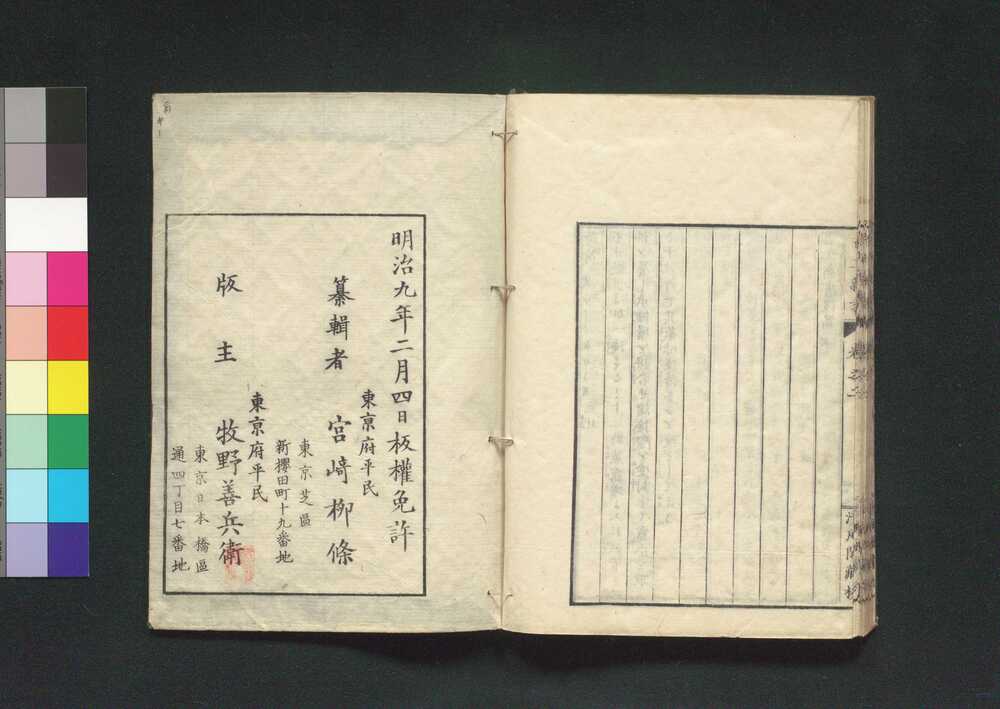 明治九年二月四日板權免許
東亰府平民
纂輯者 宮崎柳條
東京芝區
新櫻田町十九番地
東亰府平民
版主 牧野善兵衛
東京日本橋區
通四丁目七番地